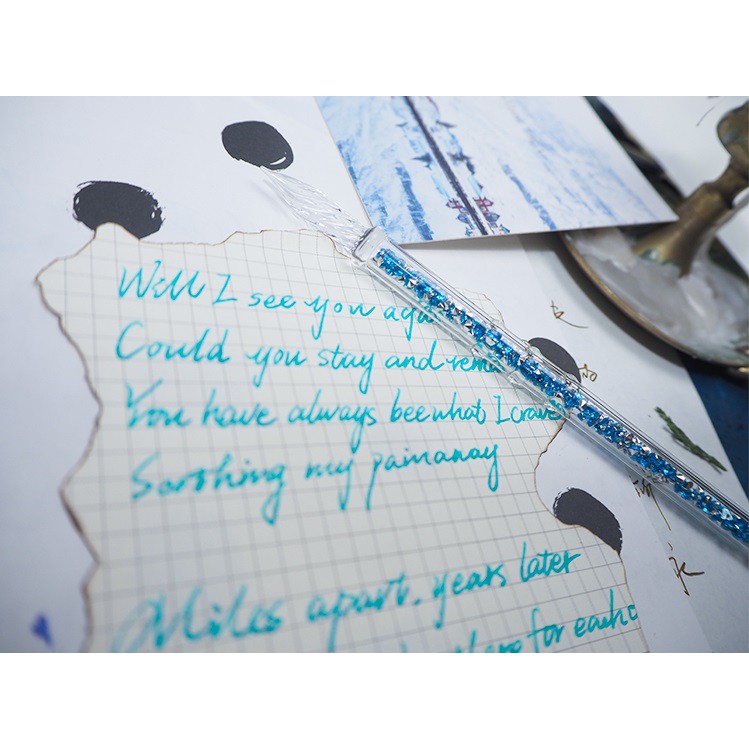 Will I see you aga
Could you stay and rema
You have always been what I crave
Soothing my pain away
Miles apart, years later
for each o